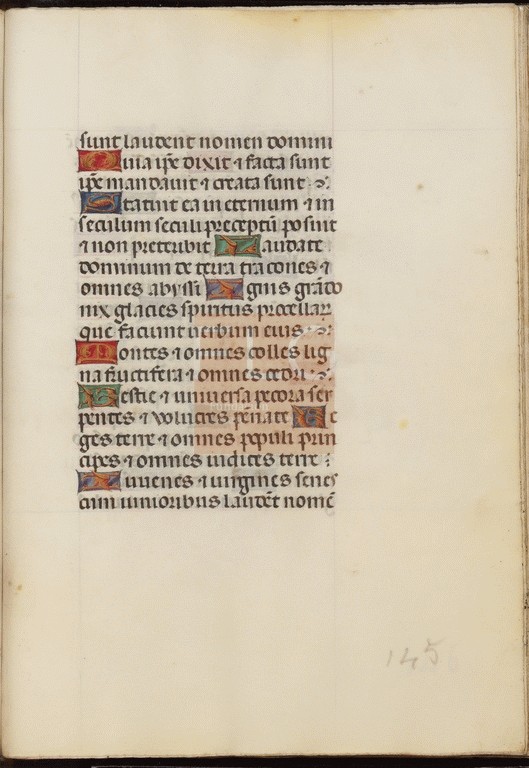 sunt laudent nomen domini
Quia ip̄e dixit ⁊ facta sunt
ip̄e mandauit ⁊ creata sunt :
Statuit ea in eternum ⁊ in
seculum seculi preceptū posuit
⁊ non preteribit Laudate
dominum de terra dracones ⁊
omnes abyssi Ignis grādo
nix glacies spiritus procellarꝝ
que faciunt uerbum eius :
Montes ⁊ omnes colles lig
na fructifera ⁊ omnes cedri :
Bestie ⁊ uniuersa pecora ser
pentes ⁊ volucres pēnate Re
ges terre ⁊ omnes populi prin
cipes ⁊ omnes iudices terre :
Iuuenes ⁊ uirgines senes
cum iunioribus laudēt nomē
145